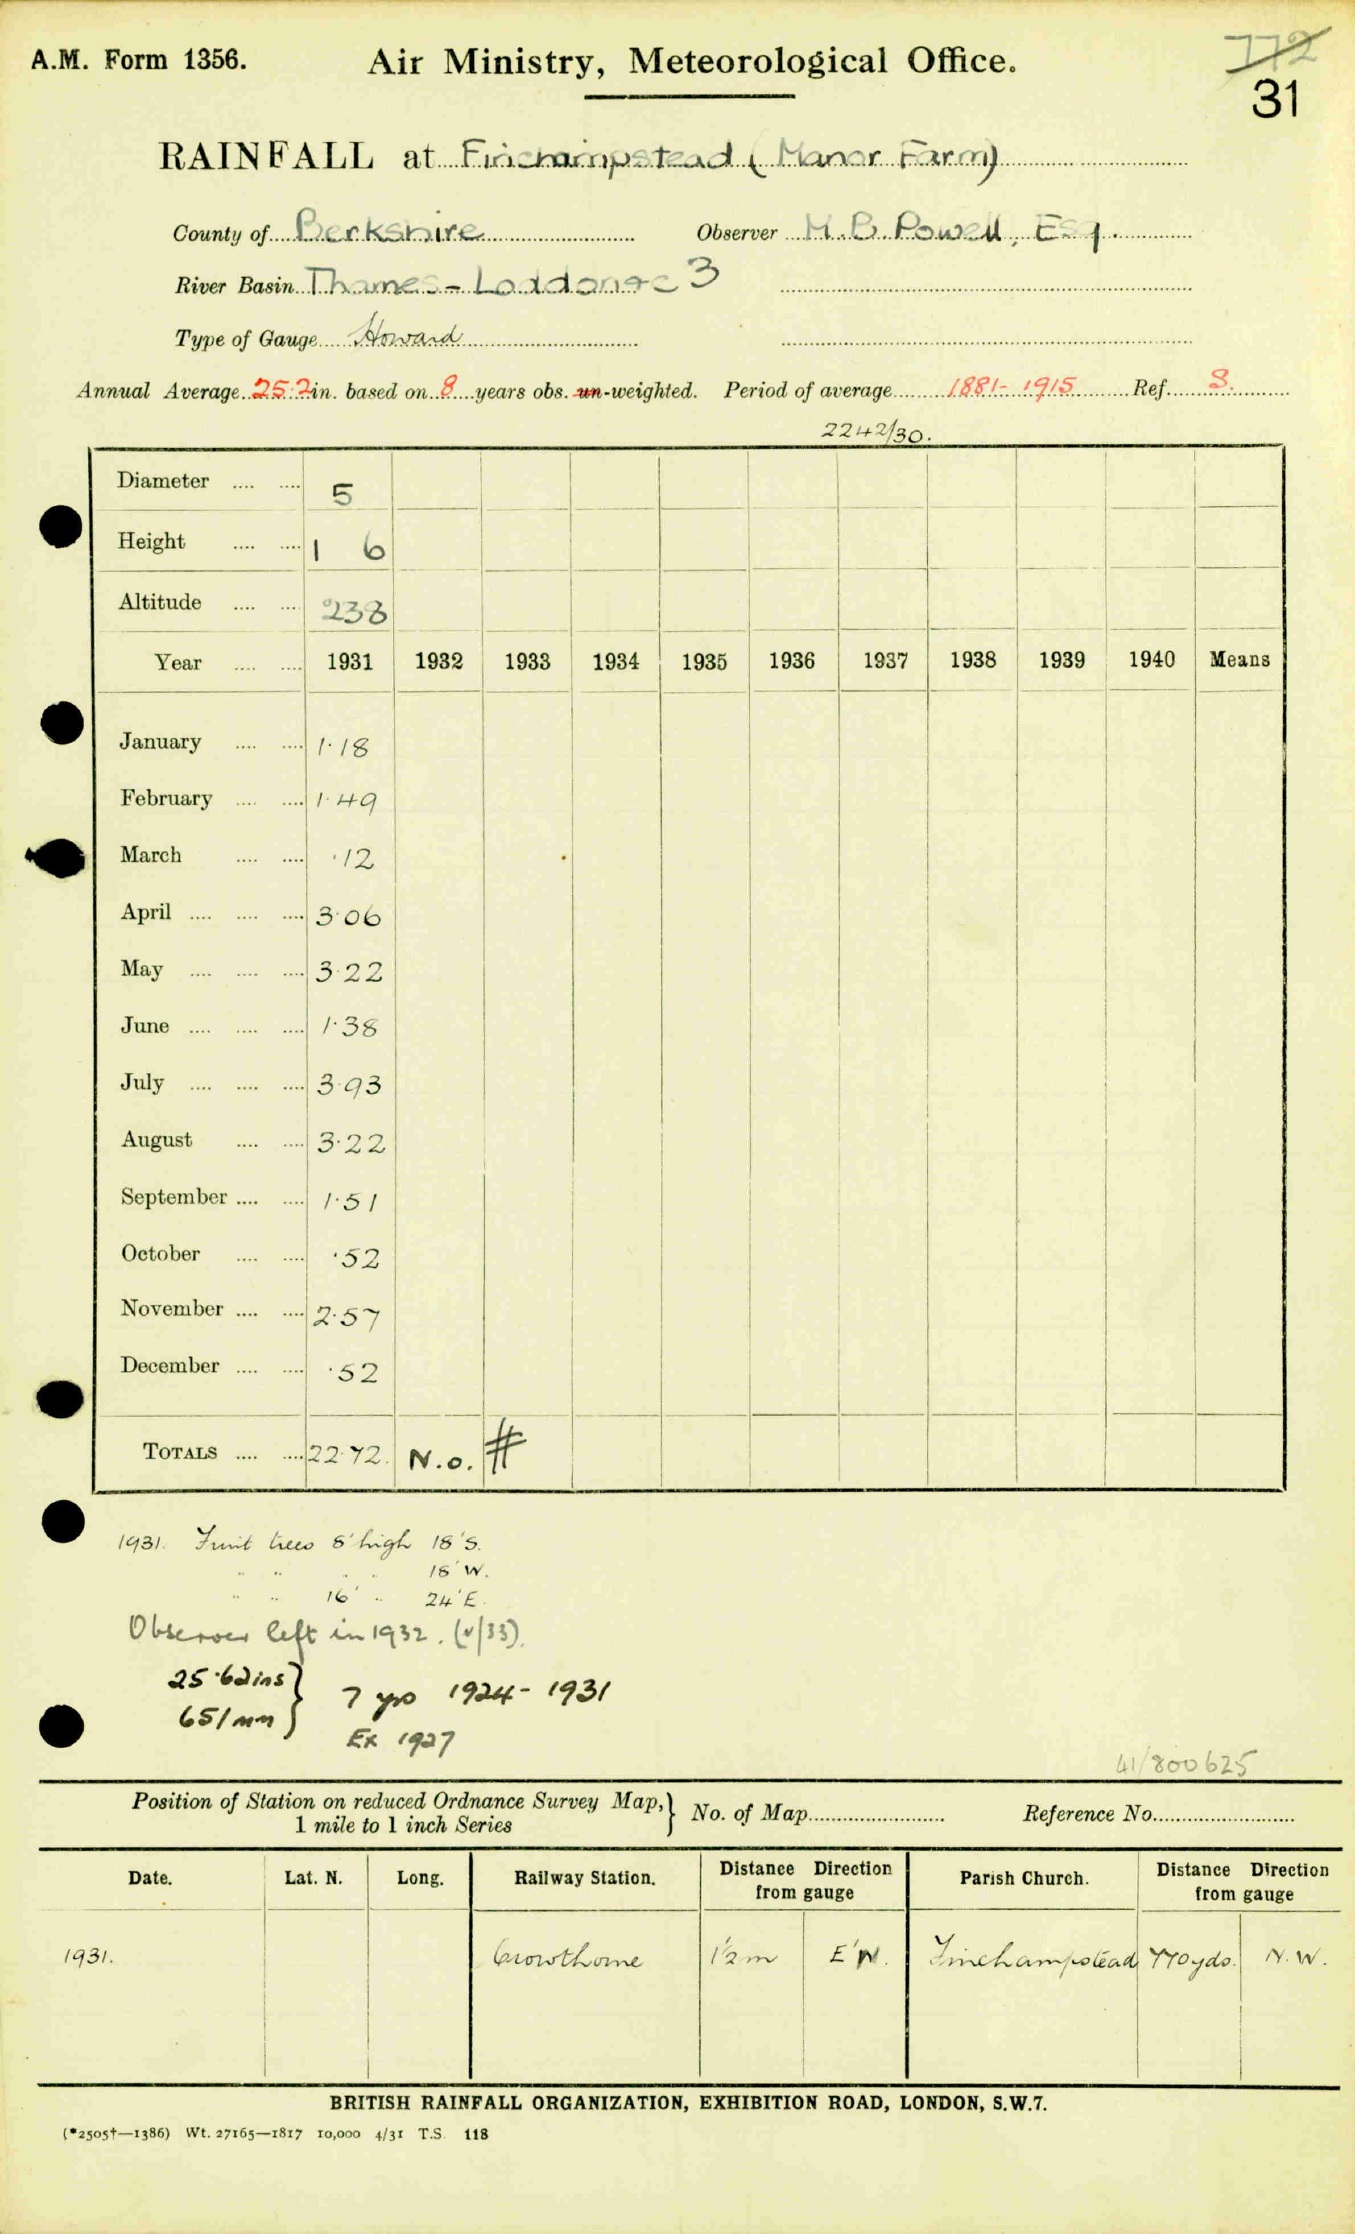 A.M. Form 1356. Air Ministry, Meteorological Office. 772
31
RAINFALL at Finchampstead (Manor Farm)
County of Berkshire Observer H.B. Powell, Esq.
River Basin Thames - Loddon &c 3
Type of Gauge Howard
Annual Average 25.2 in. based on 8 years obs. un-weighted. Period of average 1881-1915 Ref. S.
2242/30.
Diameter .... .... 5
Height .... .... 1 6
Altitude .... .... 238
Year .... .... 1931 1932 1933 1934 1935 1936 1937 1938 1939 1940 Means
January .... .... 1.18
February .... .... 1.49
March .... .... .12
April .... .... .... 3.06
May .... .... .... 3.22
June .... .... .... 1.38
July .... .... .... 3.93
August .... .... 3.22
September .... .... 1.51
October .... .... .52
November .... .... 2.57
December .... .... .52
TOTALS .... .... 22.72 N.o. #
1931. Fruit trees 8' high 18' S.
" " " " 18' W.
" " 16' " 24' E.
Observer left in 1932. (v/33).
25.62 ins } 7 yrs 1924 - 1931
651 mm } Ex 1927
41/800625
Position of Station on reduced Ordnance Survey Map, } No. of Map Reference No.
1 mile to 1 inch Series
Date. Lat. N. Long. Railway Station. Distance Direction from gauge Parish Church. Distance Direction from gauge
1931. Crowthorne 1½ m E'N. Finchampstead 770 yds. N.W.
BRITISH RAINFALL ORGANIZATION, EXHIBITION ROAD, LONDON, S.W.7.
(*2505†—1386) Wt. 27165—1817 10,000 4/31 T.S. 118